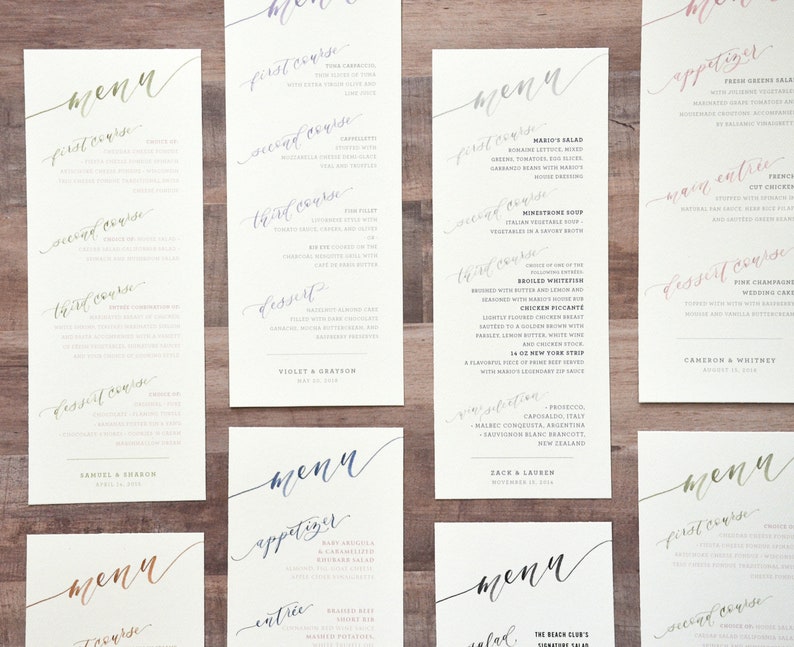 menu
first course
CHOICE OF:
CHEDDAR CHEESE FONDUE -
FIESTA CHEESE FONDUE SPINACH
ARTICHOKE CHEESE FONDUE - WISCONSIN
CHEESE FONDUE
second course
CHOICE OF: HOUSE SALAD -
CAESAR SALAD CALIFORNIA SALAD -
SPINACH AND MUSHROOM SALAD
third course
ENTRÉE COMBINATION OF:
MARINATED BREAST OF CHICKEN
AND PASTA ACCOMPANIED WITH A VARIETY
YOUR CHOICE OF COOKING STYLE
dessert course
CHOICE OF:
ORIGINAL - PURE
CHOCOLATE - FLAMING TURTLE
- BANANAS FOSTER
- COOKIES N CREAM
MARSHMALLOW DREAM
SAMUEL & SHARON
menu
first course
TUNA CARPACCIO,
THIN SLICES OF TUNA
WITH EXTRA VIRGIN OLIVE AND
LIME JUICE
second course
CAPPELLETTI
STUFFED WITH
MOZZABELLA CHEESE DEMI-GLACE
VEAL AND TRUFFLES
third course
FISH FILLET
LIVORNESE STYLE WITH
TOMATO SAUCE, CAPERS, AND OLIVES
-OR-
RIB EYE COOKED ON THE
CHARCOAL MESQUITE GRILL WITH
CAFÉ DE PARIS BUTTER
dessert
HAZELNUT-ALMOND CAKE
FILLED WITH DARK CHOCOLATE
GANACHE, MOCHA BUTTERCREAM, AND
RASPBERRY PRESERVES
VIOLET & GRAYSON
MAY 20, 2018
menu
first course
MARIO'S SALAD
ROMAINE LETTUCE, MIXED
GREENS, TOMATOES, EGG SLICES,
GARBANZO BEANS WITH MARIO'S
HOUSE DRESSING
second course
MINESTRONE SOUP
ITALIAN VEGETABLE SOUP -
VEGETABLES IN A SAVORY BROTH
third course
CHOICE OF ONE OF THE
FOLLOWING ENTRÉES:
BROILED WHITEFISH
BRUSHED WITH BUTTER AND LEMON AND
SEASONED WITH MARIO'S HOUSE RUB
CHICKEN PICCANTÉ
LIGHTLY FLOURED CHICKEN BREAST
SAUTÉED TO A GOLDEN BROWN WITH
PARSLEY, LEMON, BUTTER, WHITE WINE
AND CHICKEN STOCK.
14 OZ NEW YORK STRIP
A FLAVORFUL PIECE OF PRIME BEEF SERVED
WITH MARIO'S LEGENDARY ZIP SAUCE
wine selection
- PROSECCO,
CAPOSALDO, ITALY
- MALBEC CONQEUSTA, ARGENTINA
- SAUVIGNON BLANC BRANCOTT,
NEW ZEALAND
ZACK & LAUREN
NOVEMBER 15, 2014
appetizer
FRESH GREENS SALAD
WITH JULIENNE VEGETABLE
MARINATED GRAPE TOMATOES AND
HOUSEMADE CROUTONS. ACCOMPANIED
BY BALSAMIC VINAIGRETTE
main entrée
FRENCH
CUT CHICKEN
STUFFED WITH SPINACH IN
NATURAL PAN SAUCE, HERB RICE PILAF
AND SAUTÉED GREEN BEANS
dessert course
PINK CHAMPAGNE
WEDDING CAKE
TOPPED WITH WITH WITH RASPBERRY
MOUSSE AND VANILLA BUTTERCREAM
CAMERON & WHITNEY
AUGUST 15, 2015
menu
course
menu
appetizer
BABY ARUGULA
& CARAMELIZED
RHUBARB SALAD
ALMOND, FIG, GOAT CHEESE,
APPLE CIDER VINAIGRETTE
entrée
BRAISED BEEF
SHORT RIB
CINNAMON RED WINE SAUCE
MASHED POTATOES,
WHITE TRUFFLE OIL
menu
salad
THE BEACH CLUB'S
SIGNATURE SALAD
menu
first course
CHEDDAR CHEESE
FIESTA CHEESE FONDUE SPINACH
ARTICHOKE CHEESE FONDUE
CHEESE FONDUE
second course
CHOICE OF: HOUSE SALAD
CAESAR SALAD CALIFORNIA SALAD
SPINACH AND MUSHROOM SALAD